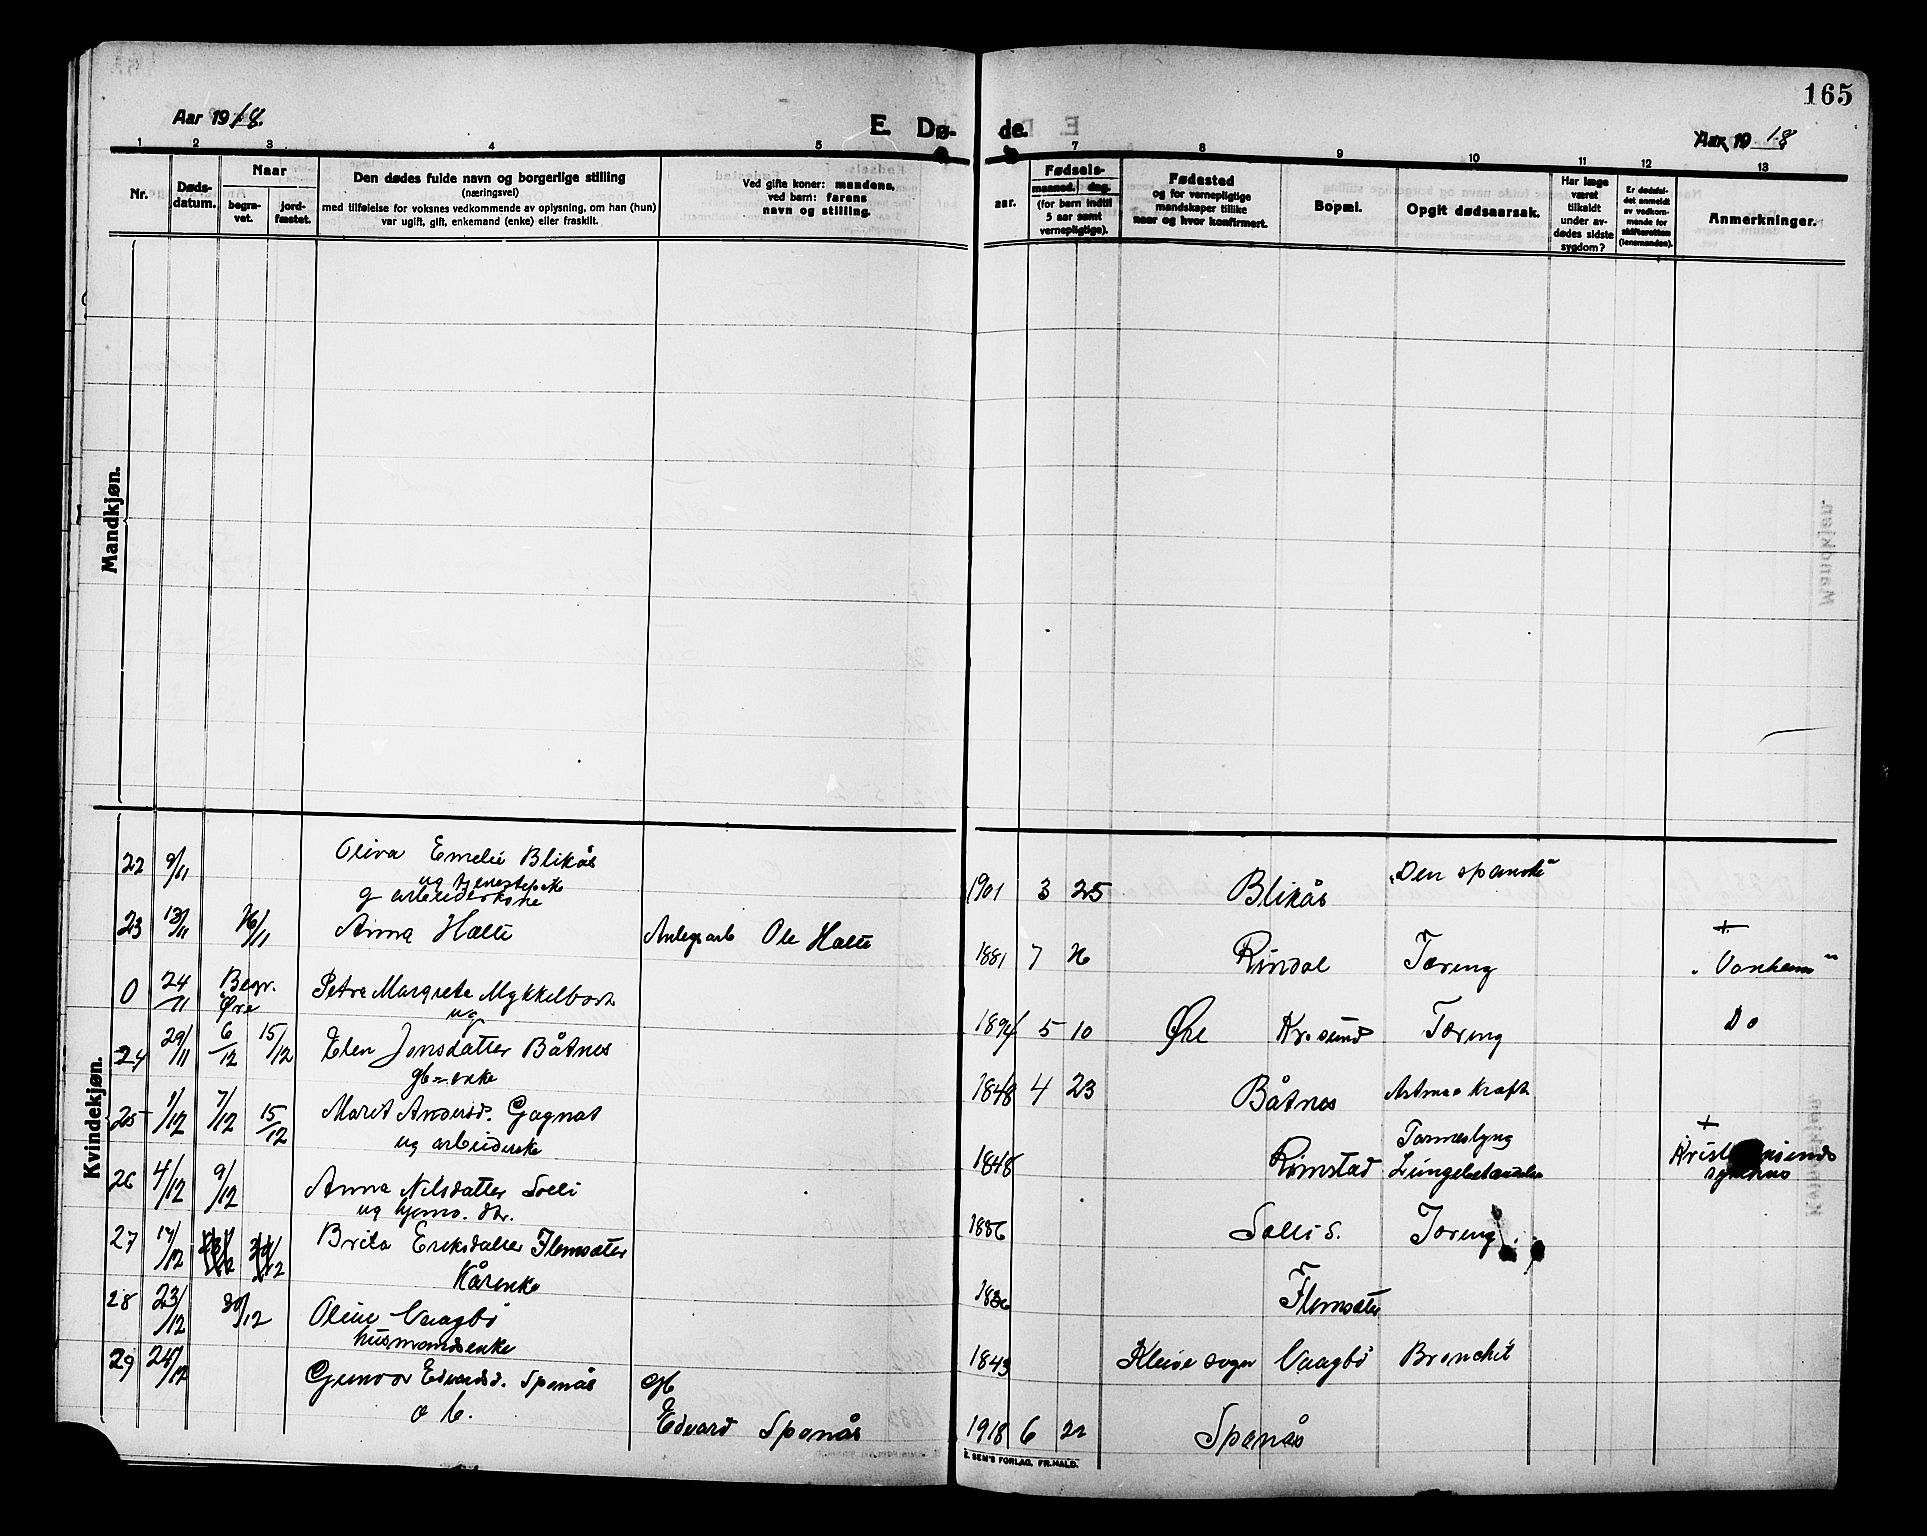 165
Aar 1918.
E. Dø-
de.
Aar 1918
1 2 3 4 5 7 8 9 10 11 12 13
Nr.
Døds-
datum.
Naar
begra-
vet.
jord-
fæstet.
Den dødes fulde navn og borgerlige stilling
(næringsvei)
med tilføielse for voksnes vedkommende av oplysning, om han (hun)
var ugift, gift, enkemand (enke) eller fraskilt.
Ved gifte koner: mandens,
ved barn: farens
navn og stilling.
aar.
Fødsels-
maaned. dag.
(for barn indtil
5 aar samt
vernepligtige).
Fødested
og for vernepligtige
mandskaper tillike
naar og hvor konfirmert.
Bopæl.
Opgit dødsaarsak.
Har læge
været
tilkaldt
under av-
dødes sidste
sygdom?
Er dødsfal-
det anmeldt
av vedkom-
mende for
skifteretten
(lensmanden).
Anmerkninger.
Mandkjøn.
Kvindekjøn.
22 9/11 Oliva Emelie Blikås
ug tjenestepike
1901 3 25 Blikås „Den spanske"
g arbeiderkone
23 13/11 Anna Halle Anlegsarb Ole Halle
1881 7 26 Rindal Tæring +
0 24/11 Begr. Øre Petra Margrete Myklebost
ug
1894 5 10 Øre Kr.sund Tæring Do
24 29/11 6/12 15/12 Elen Jonsdatter Båtnes
gb=enke
1848 4 23 Båtnes
25 1/12 7/12 15/12 Marit Andersd. Gagnat
ug arbeiderske
1848 Rimstad Tarmeslyng +
26 4/12 9/12 Anna Nilsdatter Solli
ug hjemv. dtr.
1886 Solli s. Tæring
27 17/12 Brita Eriksdatter Flemsæter
Kårenke
1836 Flemsæter
28 23/12 30/12 Oline Vaagbø
husmandsenke
1843 Kleive sogn Vaagbø Bronchit
29 Gunvor Edvardsd. Spenås
gb
Edvard Spenås
1918 6 22 Spenås
E. SEM'S FORLAG, FR.HALD.